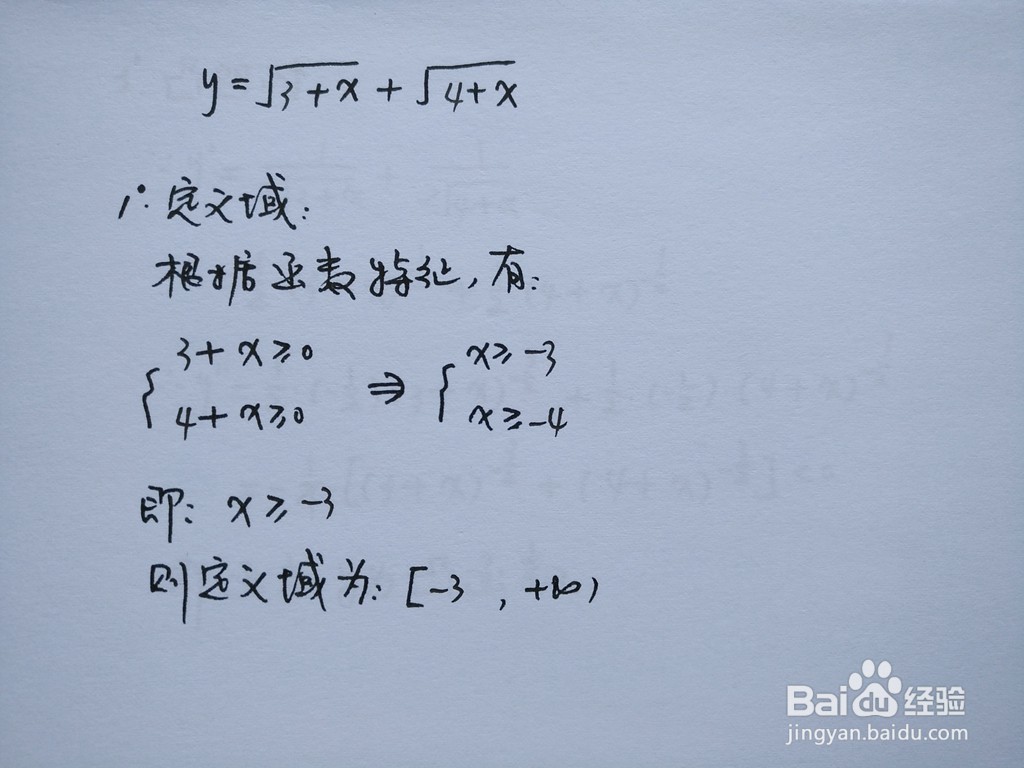 y=√3+x + √4+x
1°. 定义域:
根据函数特征,有:
{ 3+x≥0 ⇒ { x≥-3
4+x≥0 x≥-4
即: x≥-3
则定义域为: [-3 , +∞)
Baidu经验
jingyan.baidu.com